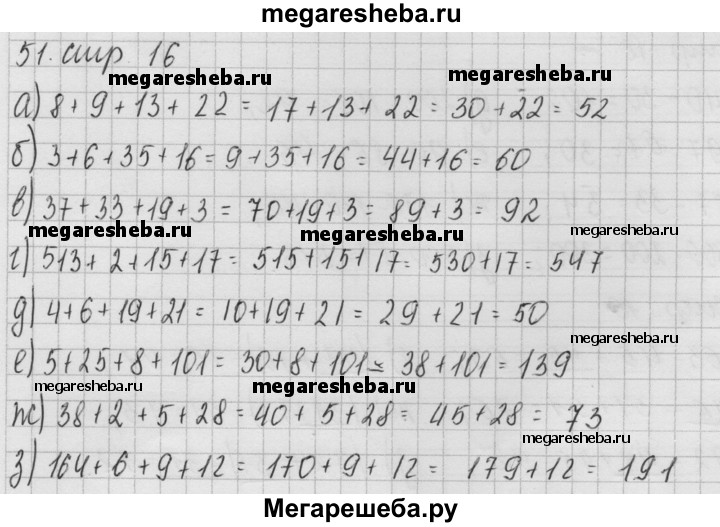 megaresheba.ru
51. стр. 16
megaresheba.ru megaresheba.ru
а) 8+9+13+22 = 17+13+22 = 30+22 = 52
б) 3+6+35+16 = 9+35+16 = 44+16 = 60
в) 37+33+19+3 = 70+19+3 = 89+3 = 92
megaresheba.ru megaresheba.ru megaresheba.ru
г) 513+2+15+17 = 515+15+17 = 530+17 = 547
д) 4+6+19+21 = 10+19+21 = 29+21 = 50
megaresheba.ru
е) 5+25+8+101 = 30+8+101 = 38+101 = 139
megaresheba.ru megaresheba.ru
ж) 38+2+5+28 = 40+5+28 = 45+28 = 73
megaresheba.ru
з) 164+6+9+12 = 170+9+12 = 179+12 = 191
Мегарешеба.ру